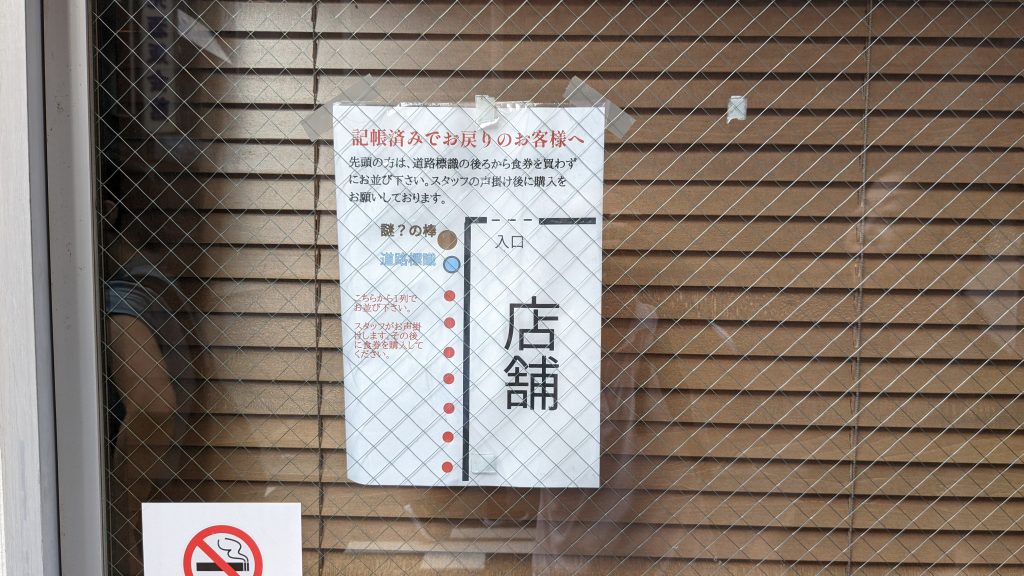 記帳済みでお戻りのお客様へ
先頭の方は、道路標識の後ろから食券を買わず
にお並び下さい。スタッフの声掛け後に購入を
お願いしております。
謎?の棒
入口
道路標識
こちらから1列で
お並び下さい。
スタッフがお声掛
けします。その後
に食券を購入して
ください。
店
舗